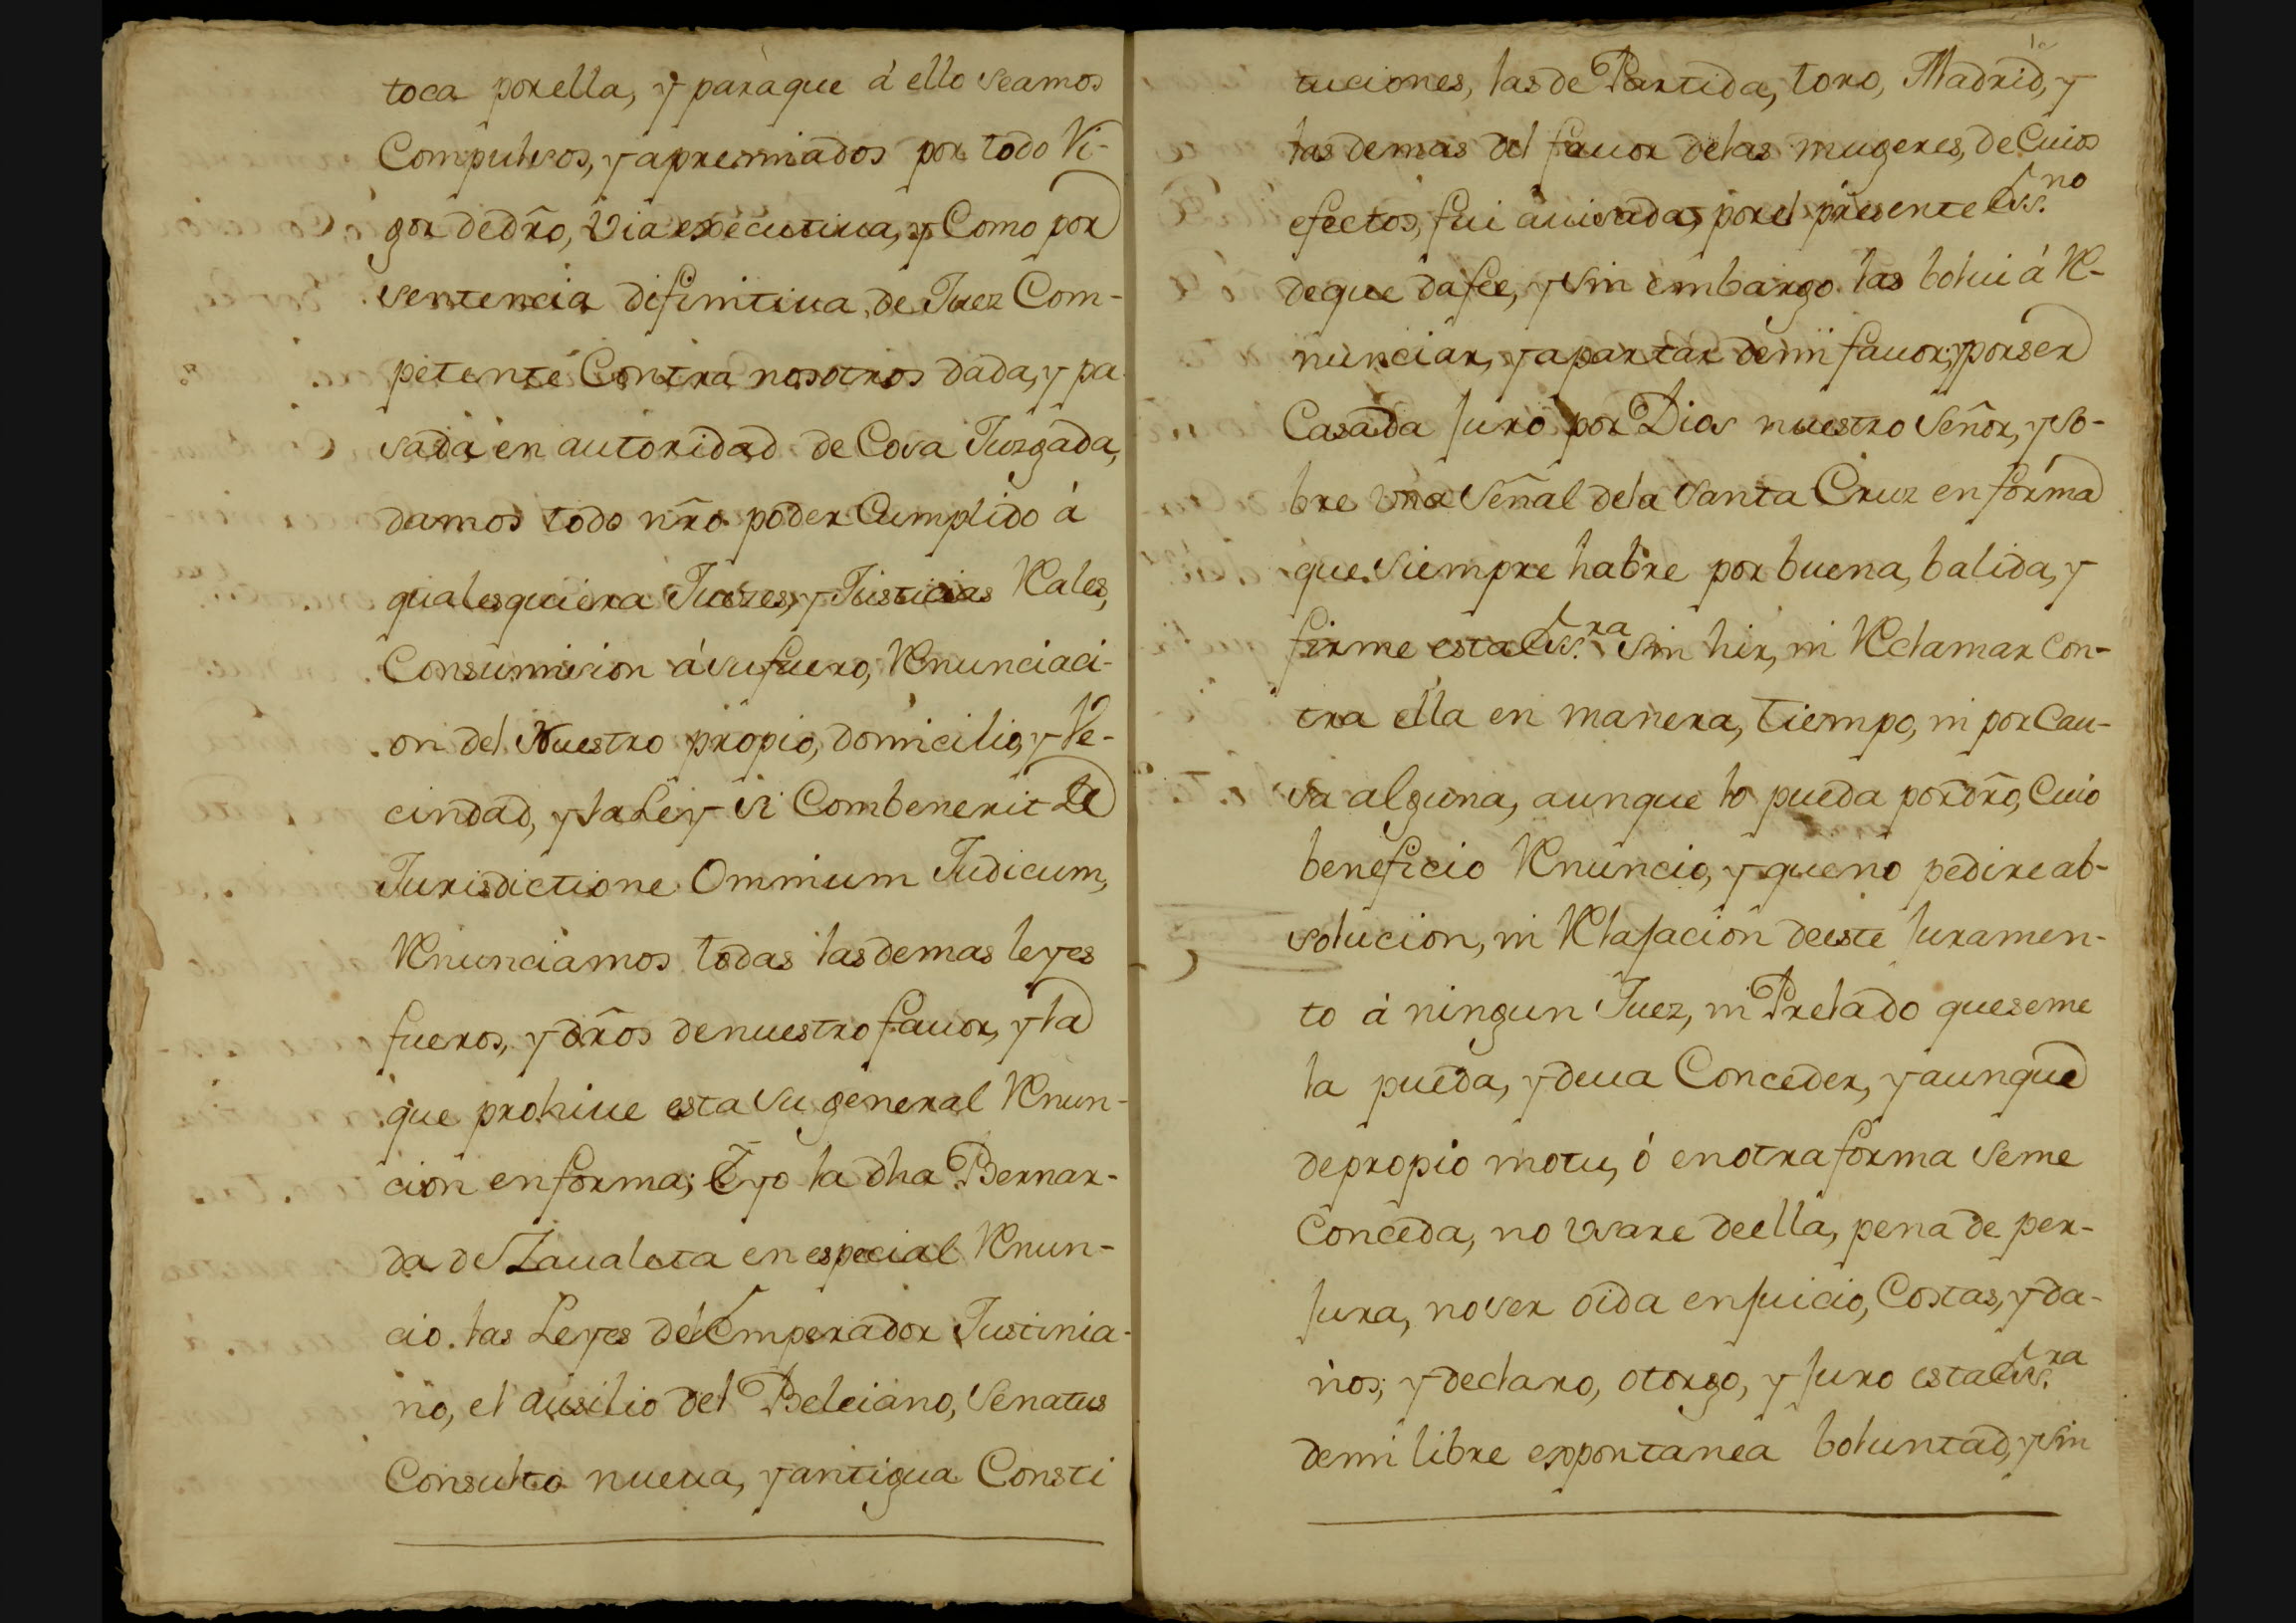 toca por ella, y para que á ello seamos
Compulsos, y apremiados por todo Vi-
gor de dr̃o, Via executiua, y Como por
sentencia difinitiua, de Juez Com-
petente Contra nosotros dada, y pa
sada en autoridad de Cosa Juzgada,
damos todo nr̃o poder Cumplido á
qualesquiera Juezes, y Justicias Rales,
Consumision á su fuero, Renunciaci-
on del Nuestro propio, domicilio, y Ve-
cindad, y la Ley si Combenerit De
Jurisdictione Omnium Judicum,
Renunciamos todas las demas leyes
fueros, y dr̃os de nuestro fauor, y la
que prohiue esta su general Renun-
cion en forma; E yo la dha Bernar-
da de Zaualeta en especial Renun-
cio las Leyes del Emperador Justinia-
no, el ausilio del Beleiano, Senatus
Consulto nueua, y antigua Consti
tuciones, las de Partida, toro, Madrid, y
las demas del fauor de las mugeres, de Cuios
efectos, fui auisada, por el presente Ess.no
de que da fee, y sin embargo las bolui á Re-
nunciar, y apartar de mi fauor; y por ser
Casada Juro por Dios nuestro Señor, y so-
bre una Señal de la Santa Cruz en forma
que siempre habre por buena, balida, y
firme esta Ess.ra sin hir, ni Reclamar con-
tra ella en manera, tiempo, ni por Cau-
sa alguna, aunque lo pueda por dr̃o, Cuio
beneficio Renuncio, y que no pedire ab-
solucion, ni Relajacion de este Juramen-
to á ningun Juez, ni Prelado que se me
la pueda, y deua Conceder, y aunque
de propio motu, ó en otra forma se me
Conceda, no usare de ella, pena de per-
Jura, no ser oida en Juicio, Costas, y da-
ños; y declaro, otorgo, y Juro esta Ess.ra
de mi libre expontanea boluntad, y sin